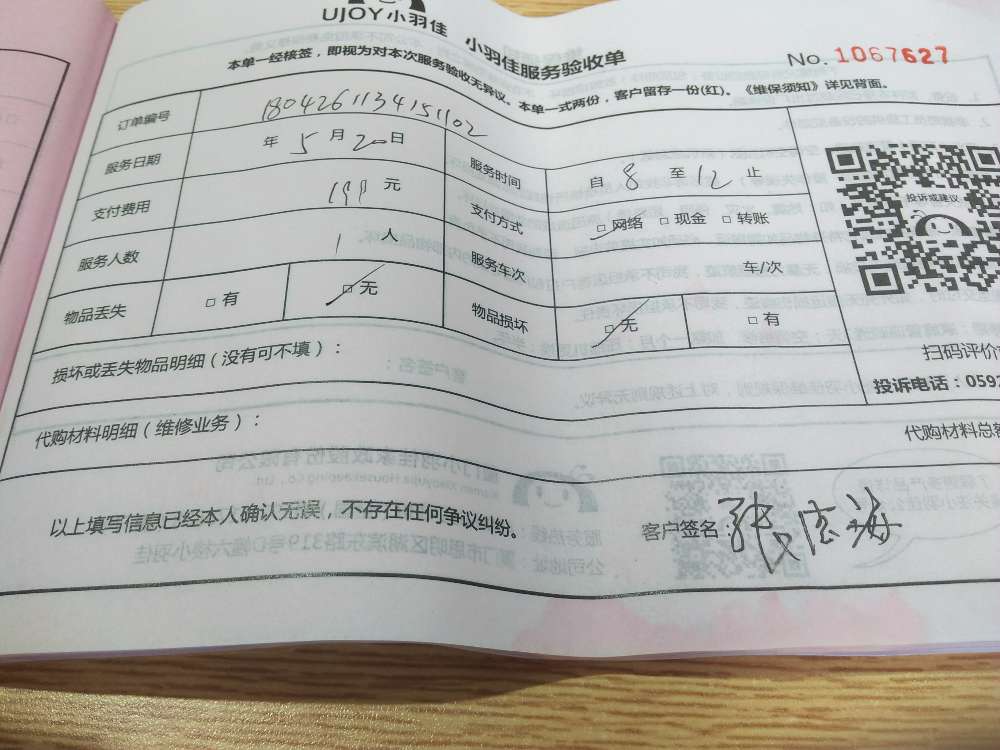 UJOY小羽佳 小羽佳服务验收单
No. 1067627
本单一经核签，即视为对本次服务验收无异议。本单一式两份，客户留存一份(红)。《维保须知》详见背面。
订单编号 1804261134151102
服务日期 年 5 月 20 日 服务时间 自 8 至 12 止
支付费用 199 元 支付方式 □ 网络 □ 现金 □ 转账
服务人数 1 人 服务车次 车/次
物品丢失 □ 有 □ 无 物品损坏 □ 无 □ 有
投诉或建议
扫码评价
投诉电话：0592
损坏或丢失物品明细（没有可不填）：
代购材料明细（维修业务）：
代购材料总
以上填写信息已经本人确认无误，不存在任何争议纠纷。
客户签名：张宏海